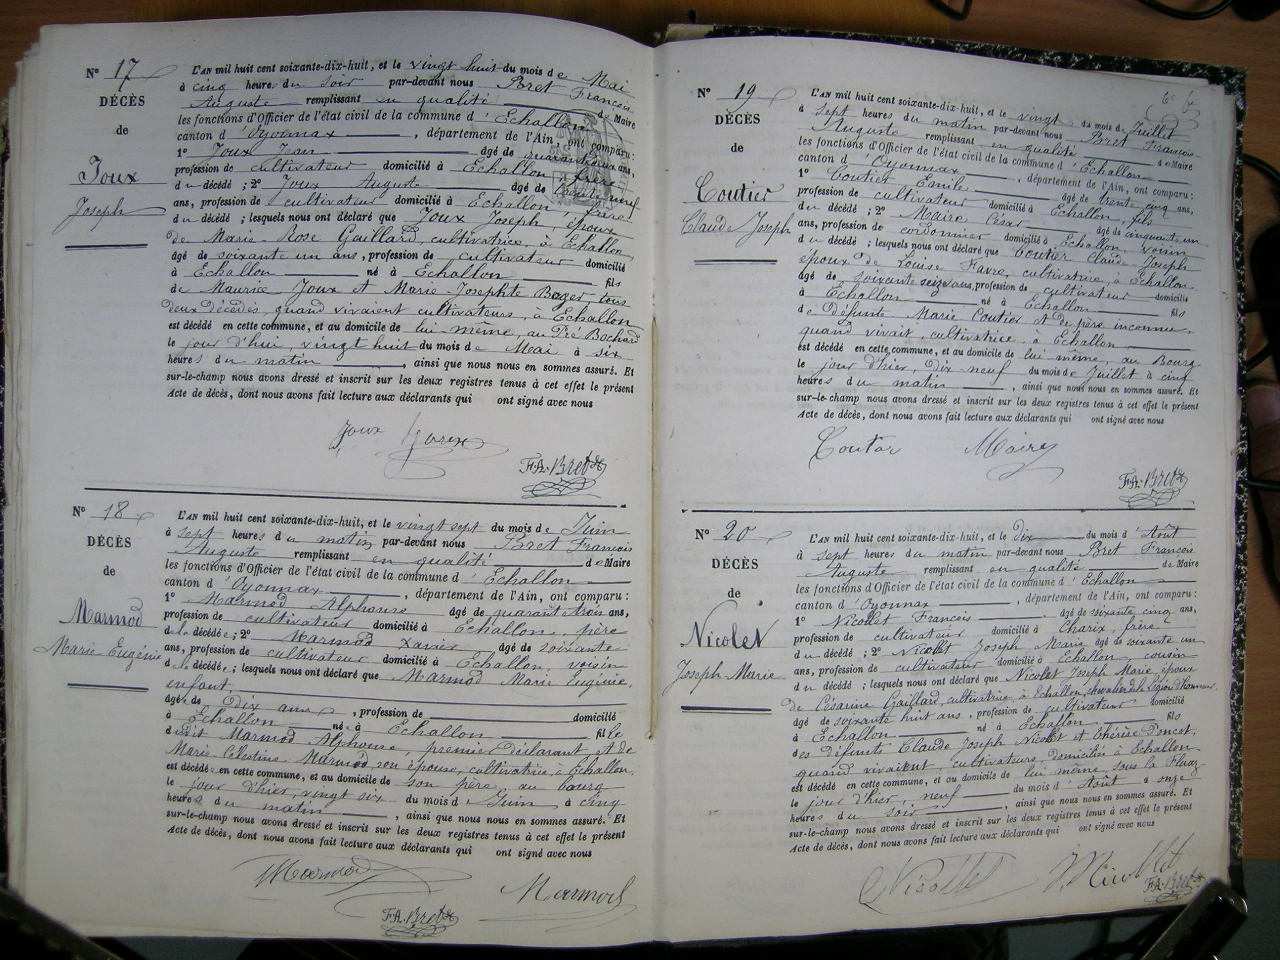 N° 17
DÉCÈS
de
Joux
Joseph
L'AN mil huit cent soixante-dix-huit, et le vingt huit du mois de Mai
à cinq heures du soir par-devant nous Bret François
Auguste remplissant en qualité de Maire
les fonctions d'Officier de l'état civil de la commune d'Echallon
canton d'Oyonnax, département de l'Ain, ont comparu :
1° Joux Jean âgé de ans,
profession de cultivateur domicilié à Echallon frère
du décédé ; 2° Joux Auguste âgé de
ans, profession de cultivateur domicilié à Echallon frère
du décédé ; lesquels nous ont déclaré que Joux Joseph époux
de Marie Rose Gaillard, cultivatrice, à Echallon
âgé de soixante un ans, profession de cultivateur domicilié
à Echallon né à Echallon fils
de Maurice Joux et Marie-Josephte Boger, tous
deux décédés, quand vivaient cultivateurs, à Echallon
est décédé en cette commune, et au domicile de lui même, au Pré Bochard
le jour d'hui, vingt huit du mois de Mai à six
heures du matin, ainsi que nous nous en sommes assuré. Et
sur-le-champ nous avons dressé et inscrit sur les deux registres tenus à cet effet le présent
Acte de décès, dont nous avons fait lecture aux déclarants qui ont signé avec nous
Joux
F.A. Bret
N° 18
DÉCÈS
de
Marmod
Marie Eugénie
L'AN mil huit cent soixante-dix-huit, et le vingt sept du mois de Juin
à sept heures du matin par-devant nous Bret François
Auguste remplissant en qualité de Maire
les fonctions d'Officier de l'état civil de la commune d'Echallon
canton d'Oyonnax, département de l'Ain, ont comparu :
1° Marmod Alphonse âgé de quarante trois ans,
profession de cultivateur domicilié à Echallon, père
de la décédée ; 2° Marmod Xavier âgé de soixante
ans, profession de cultivateur domicilié à Echallon, voisin
de la décédée ; lesquels nous ont déclaré que Marmod Marie Eugénie
enfant
âgée de Dix ans, profession de domicilié
à Echallon née à Echallon fille
dudit Marmod Alphonse, premier déclarant et de
Marie Célestine Marmod son épouse, cultivatrice à Echallon
est décédée en cette commune, et au domicile de son père, au bourg
le jour d'hier, vingt six du mois de Juin à cinq
heures du matin, ainsi que nous nous en sommes assuré. Et
sur-le-champ nous avons dressé et inscrit sur les deux registres tenus à cet effet le présent
Acte de décès, dont nous avons fait lecture aux déclarants qui ont signé avec nous
Marmod
Marmod
F.A. Bret
N° 19
DÉCÈS
de
Coutier
Claude Joseph
L'AN mil huit cent soixante-dix-huit, et le vingt du mois de Juillet
à sept heures du matin par-devant nous Bret François
Auguste remplissant en qualité de Maire
les fonctions d'Officier de l'état civil de la commune d'Echallon
canton d'Oyonnax, département de l'Ain, ont comparu :
1° Coutier Emile âgé de trente cinq ans,
profession de cultivateur domicilié à Echallon, fils
du décédé ; 2° Maire César âgé de cinquante un
ans, profession de cordonnier domicilié à Echallon voisin
du décédé ; lesquels nous ont déclaré que Coutier Claude Joseph
époux de Louise Favre, cultivatrice, à Echallon
âgé de soixante seize ans, profession de cultivateur domicilié
à Echallon né à Echallon fils
de Défunte Marie Coutier et de père inconnu,
quand vivait, cultivatrice, à Echallon
est décédé en cette commune, et au domicile de lui même, au Bourg
le jour d'hier, Dix neuf du mois de Juillet à cinq
heures du matin, ainsi que nous nous en sommes assuré. Et
sur-le-champ nous avons dressé et inscrit sur les deux registres tenus à cet effet le présent
Acte de décès, dont nous avons fait lecture aux déclarants qui ont signé avec nous
Coutier Maire
F.A. Bret
N° 20
DÉCÈS
de
Nicolet
Joseph-Marie
L'AN mil huit cent soixante-dix-huit, et le Dix du mois d'Août
à sept heures du matin par-devant nous Bret François
Auguste remplissant en qualité de Maire
les fonctions d'Officier de l'état civil de la commune d'Echallon
canton d'Oyonnax, département de l'Ain, ont comparu :
1° Nicollet François âgé de soixante cinq ans,
profession de cultivateur domicilié à Charix frère
du décédé ; 2° Nicolet Joseph Marie âgé de soixante un
ans, profession de cultivateur domicilié à Echallon cousin
du décédé ; lesquels nous ont déclaré que Nicolet Joseph Marie époux
de Césarine Gaillard, cultivatrice à Echallon, chevalier de la Légion d'honneur
âgé de soixante huit ans, profession de cultivateur domicilié
à Echallon né à Echallon fils
des défunts Claude Joseph Nicolet et Thérèse Poncet,
quand vivaient cultivateurs, domiciliés à Echallon
est décédé en cette commune, et au domicile de lui même, sous la
le jour d'hier, neuf du mois d'Août à onze
heures du soir, ainsi que nous nous en sommes assuré. Et
sur-le-champ nous avons dressé et inscrit sur les deux registres tenus à cet effet le présent
Acte de décès, dont nous avons fait lecture aux déclarants qui ont signé avec nous
Nicollet
F.A. Bret